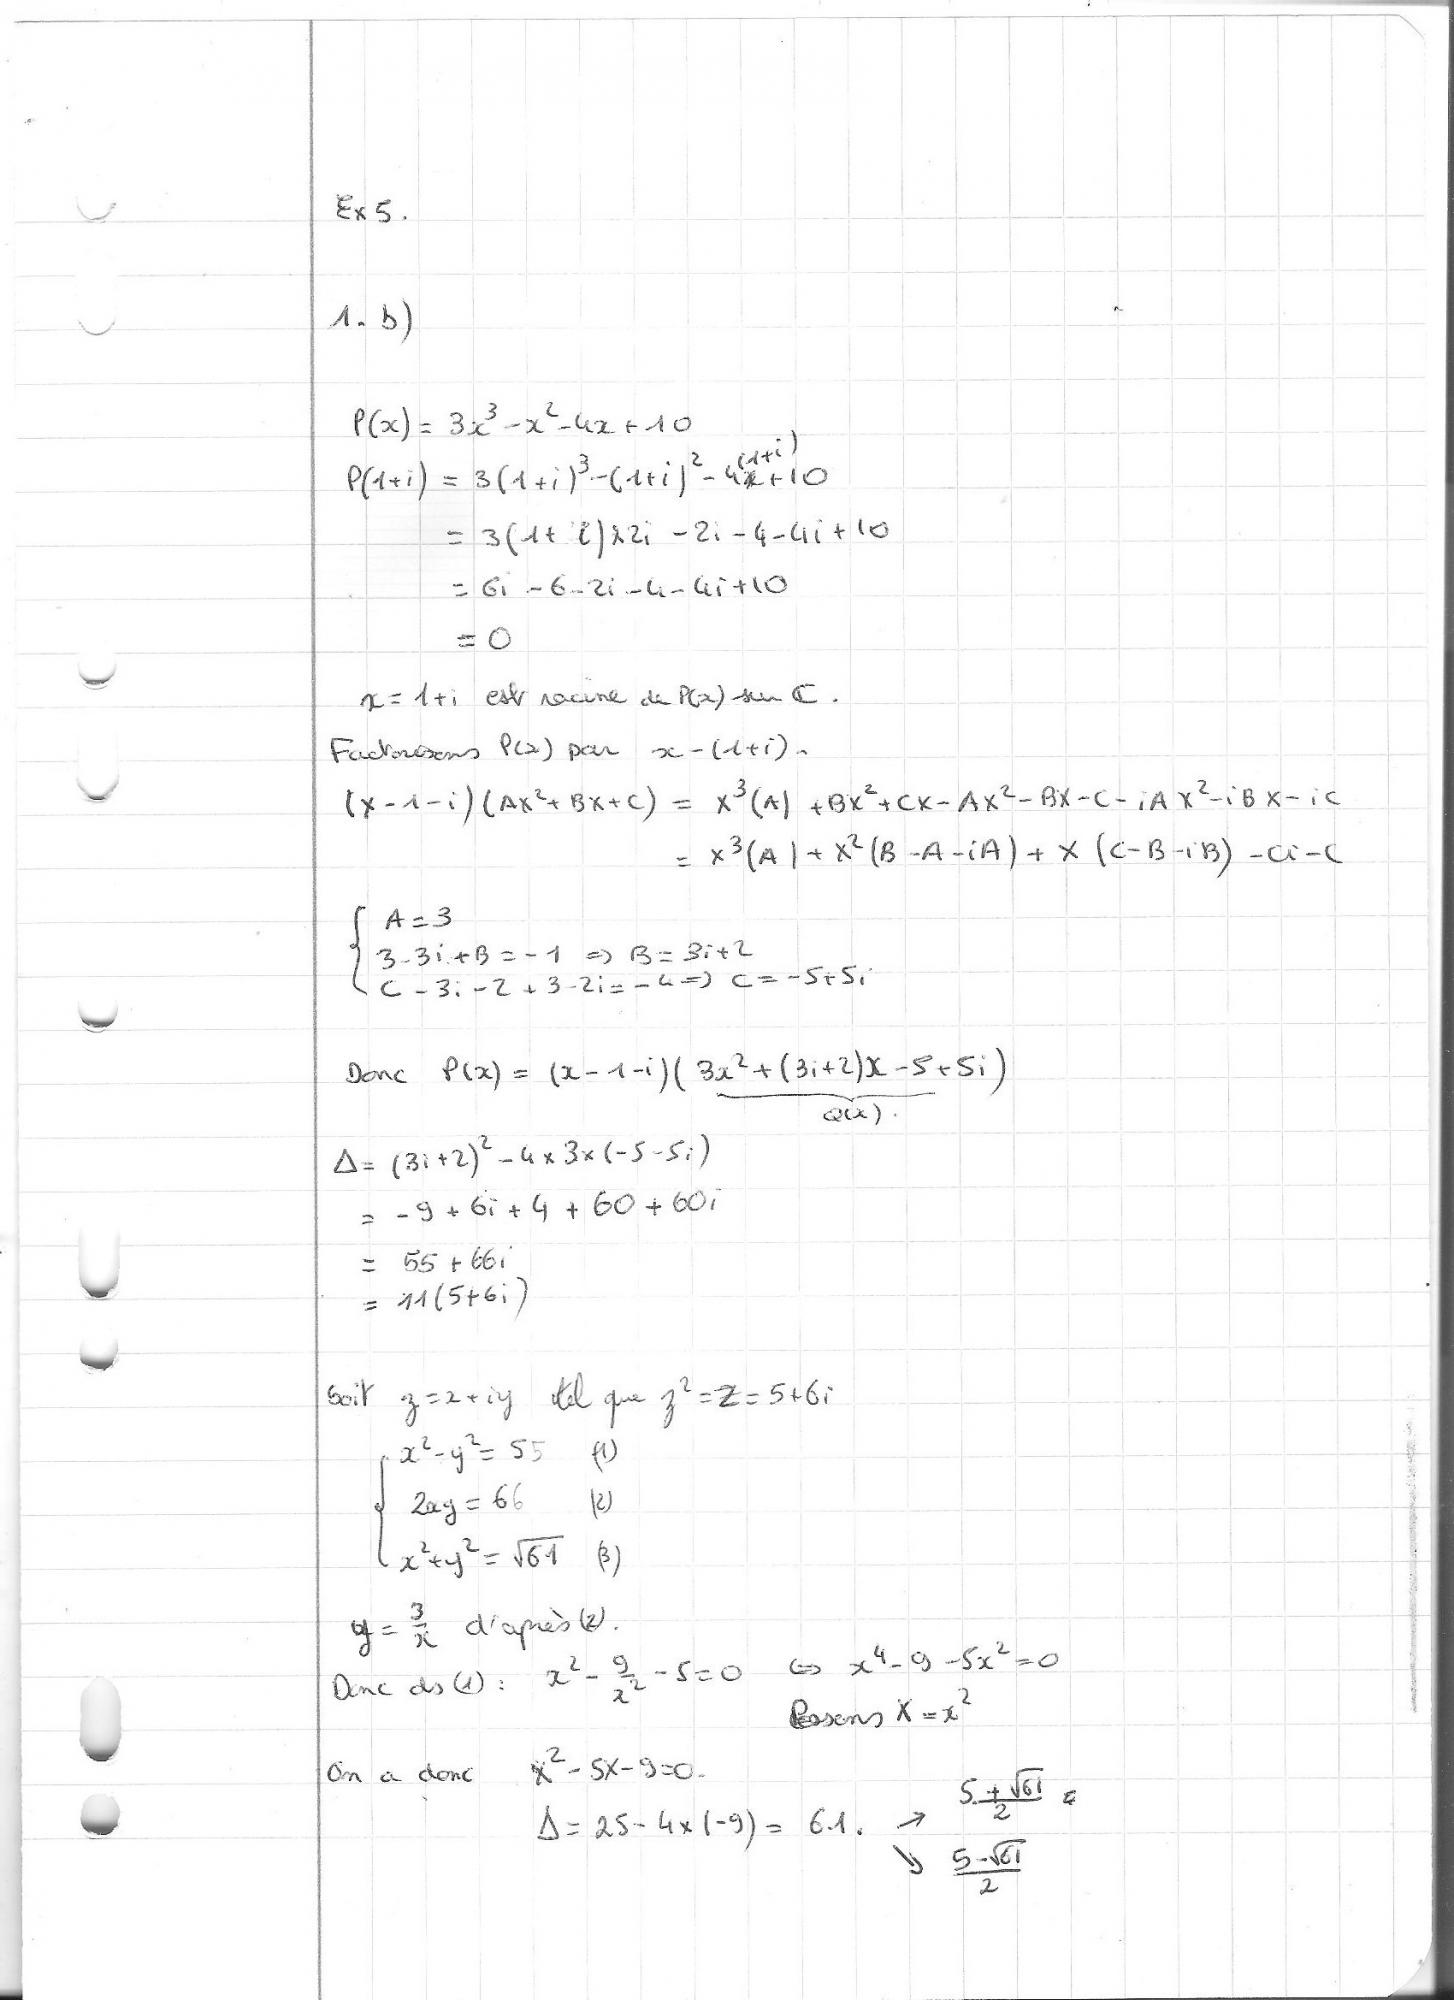 Ex 5.
1. b)
P(x) = 3x³ - x² - 4x + 10
P(1+i) = 3(1+i)³ - (1+i)² - 4(1+i) + 10
= 3(1+i)×2i - 2i - 4 - 4i + 10
= 6i - 6 - 2i - 4 - 4i + 10
= 0
x = 1+i est racine de P(x) sur ℂ.
Factorisons P(x) par x - (1+i).
(x-1-i)(Ax²+Bx+C) = x³(A) + Bx² + Cx - Ax² - Bx - C - iAx² - iBx - iC
= x³(A) + x²(B-A-iA) + x(C-B-iB) - Ci - C
{ A = 3
3-3i+B = -1 => B = 3i+2
C - 3i - 2 + 3 - 2i = -4 => C = -5+5i
Donc P(x) = (x-1-i)(3x²+(3i+2)x-5+5i)
Q(x).
Δ = (3i+2)² - 4×3×(-5-5i)
= -9 + 6i + 4 + 60 + 60i
= 55 + 66i
= 11(5+6i)
Soit z = x+iy tel que z² = Z = 5+6i
{ x²-y² = 55 (1)
2xy = 66 (2)
x²+y² = √61 (3)
y = 3/x d'après (2).
Donc ds (1) : x² - 9/x² - 5 = 0 ⇔ x⁴ - 9 - 5x² = 0
Posons X = x²
On a donc X² - 5X - 9 = 0.
Δ = 25 - 4×(-9) = 61. → (5+√61)/2
↘ (5-√61)/2